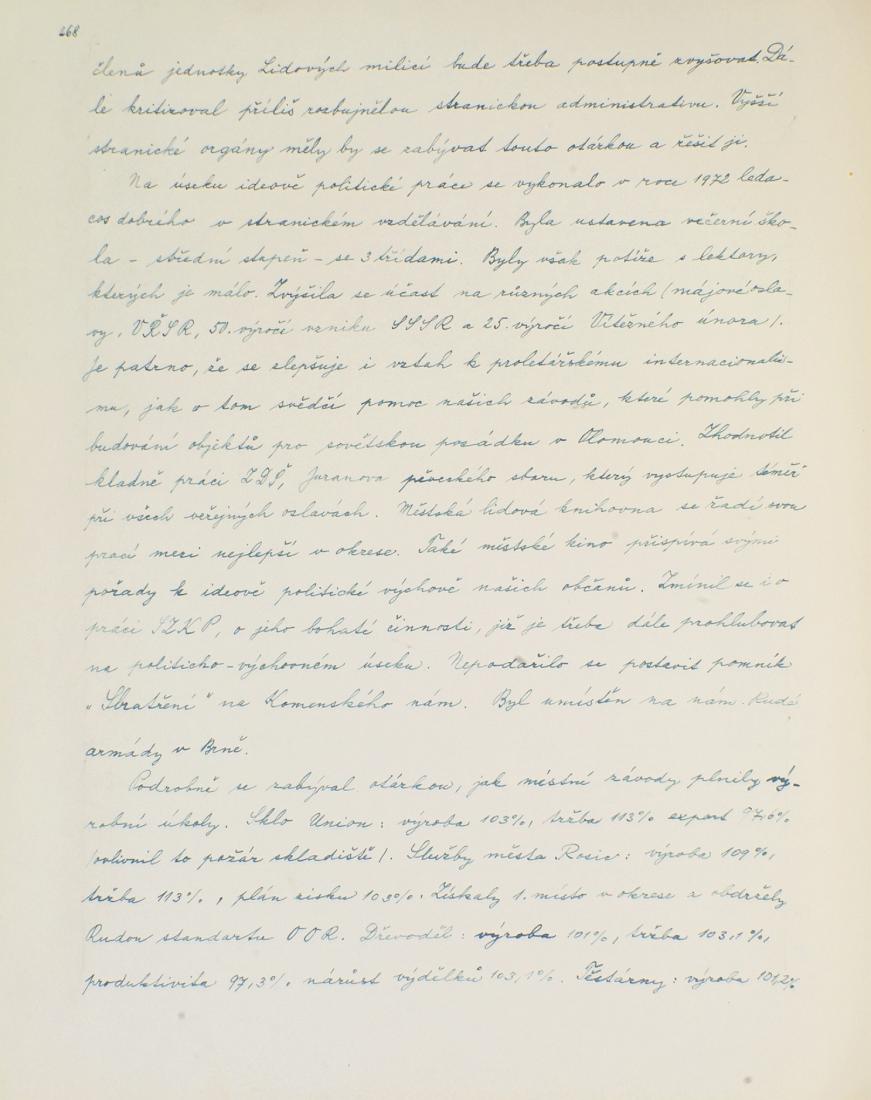 268
členů jednotky Lidových milicí bude třeba postupně zvyšovat. Dá-
le kritizoval příliš rozbujnělou stranickou administrativu. Vyšší
stranické orgány měly by se zabývat touto otázkou a řešit ji.
Na úseku ideově politické práce se vykonalo v roce 1972 leda-
cos dobrého v stranickém vzdělávání. Byla ustavena večerní ško-
la - střední stupeň - se 3 třídami. Byly však potíže s lektory,
kterých je málo. Zvýšila se účast na různých akcích /májové osla-
vy, VŘSR, 50. výročí vzniku SSSR a 25. výročí Vítězného února/.
Je patrno, že se zlepšuje i vztah k proletářskému internacionaliz-
mu, jak o tom svědčí pomoc našich závodů, které pomohly při
budování objektů pro sovětskou posádku v Olomouci. Zhodnotil
kladně práci ZDŠ, Juranova pěveckého sboru, který vystupuje téměř
při všech veřejných oslavách. Městská lidová knihovna se řadí svou
prací mezi nejlepší v okrese. Také městské kino přispívá svými
pořady k ideově politické výchově našich občanů. Zmínil se i o
práci SZKP, o jeho bohaté činnosti, již je třeba dále prohlubovat
na politicko-výchovném úseku. Nepodařilo se postavit pomník
"Sbratření" na Komenského nám. Byl umístěn na nám. Rudé
armády v Brně.
Podrobně se zabýval otázkou, jak místní závody plnily vý-
robní úkoly. Sklo Union: výroba 103%, tržba 113% export 97,6%
/ovlivnil to požár skladiště/. Služby města Rosic: výroba 109%,
tržba 113%, plán zisku 103%. Získaly 1. místo v okrese a obdržely
Rudou standartu OOR. Dřevoděl: výroba 101%, tržba 103,1%,
produktivita 97,3%, nárůst výdělků 103,1%. Těstárny: výroba 101,2%